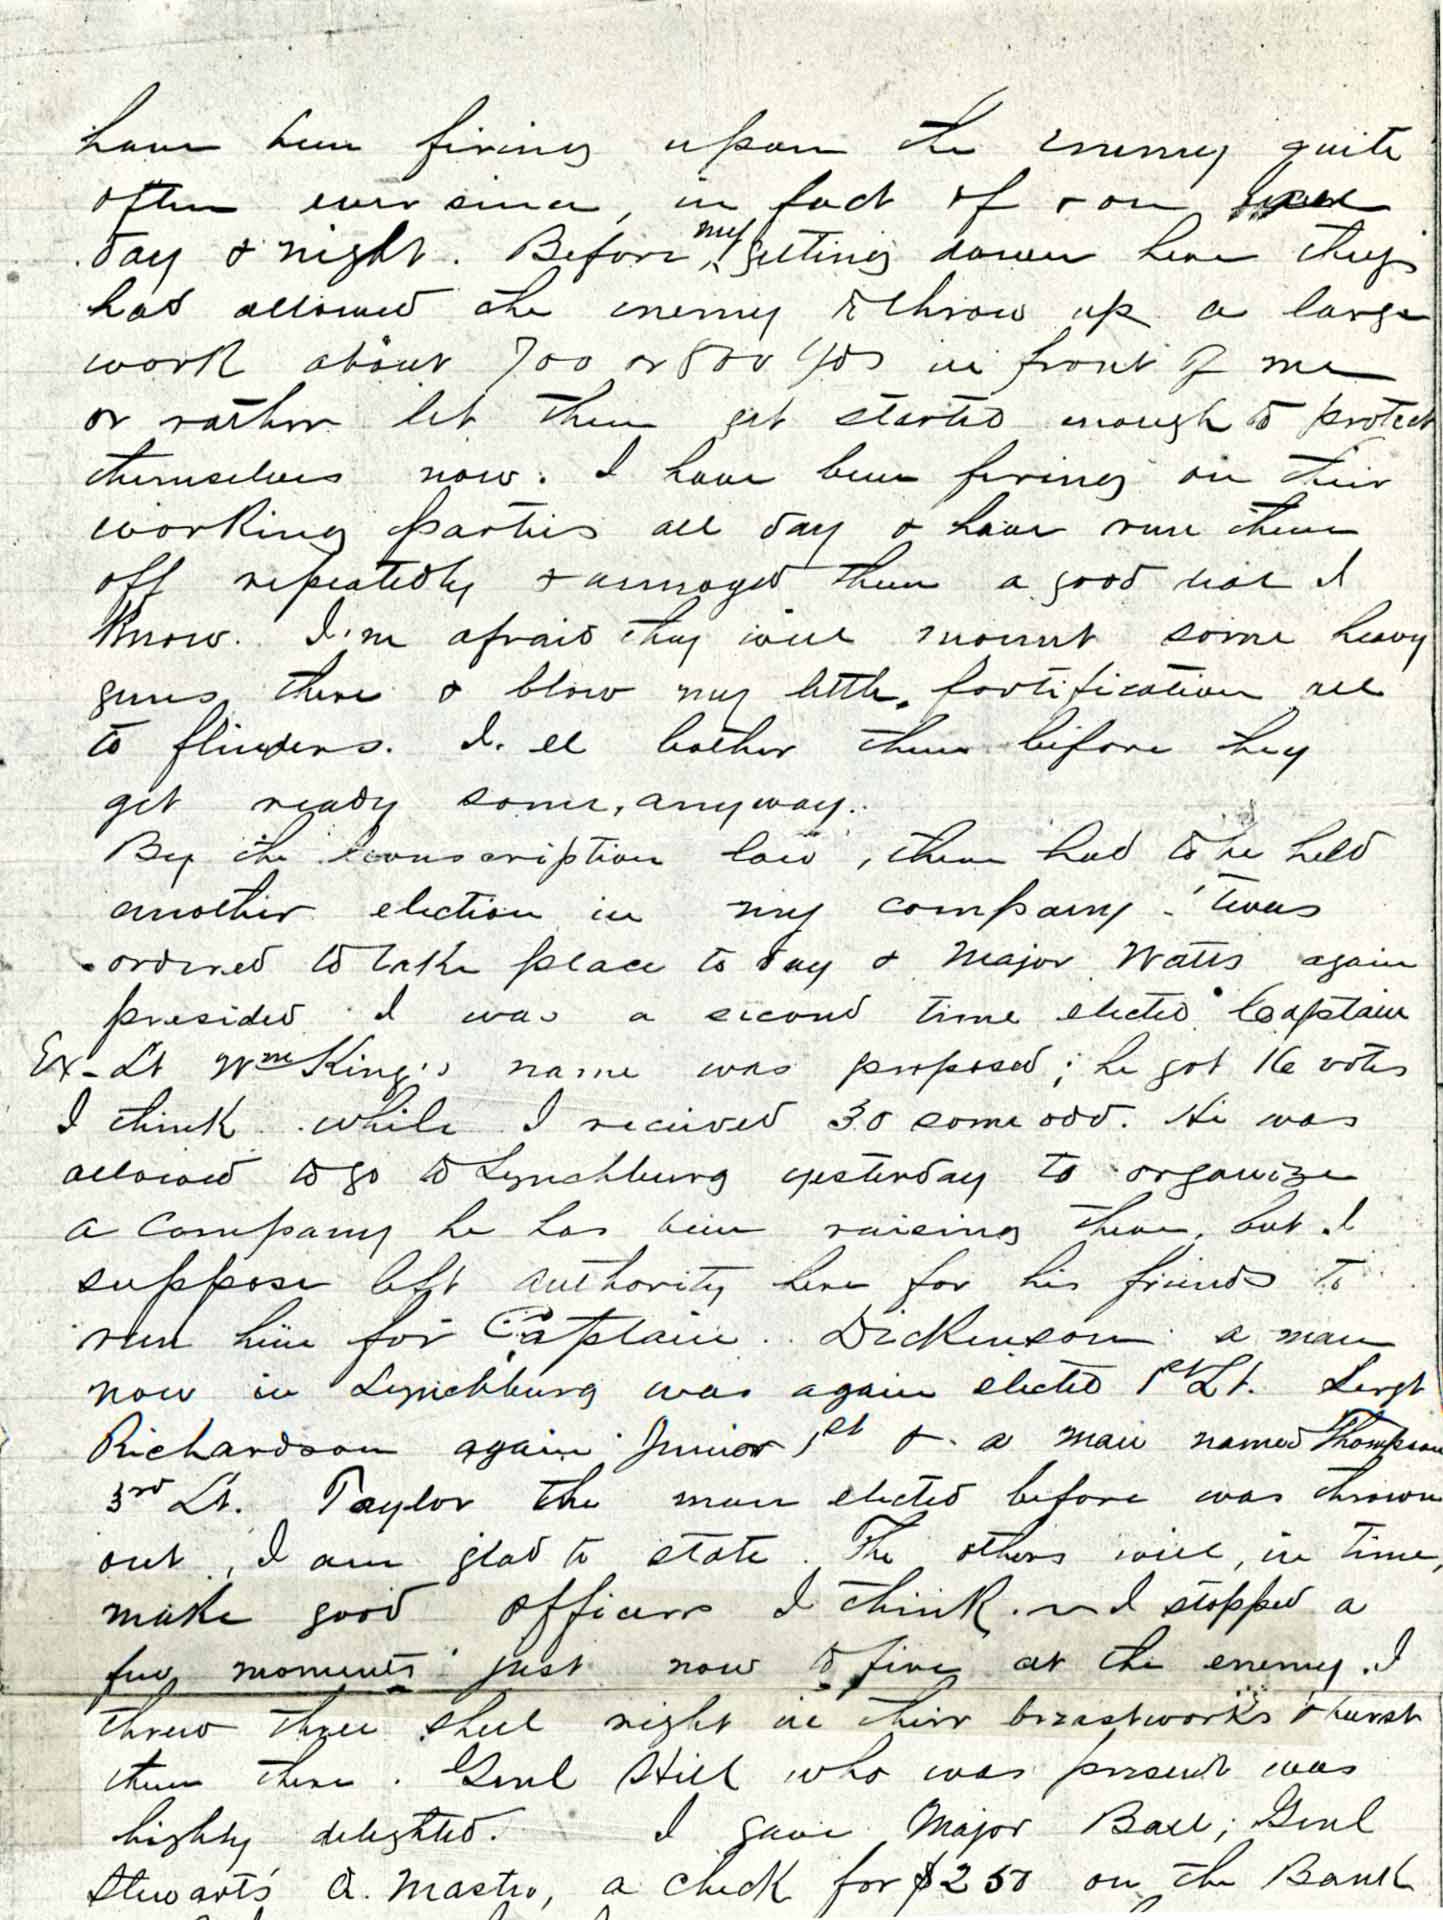 have been firing upon the enemy quite
often ever since, in fact off & on
day & night. Before my getting down here they
had allowed the enemy to throw up a large
work about 700 or 800 yds in front of me
or rather let them get started enough to protect
themselves now. I have been firing on their
working parties all day & have run them
off repeatedly & annoyed them a good deal I
know. I'm afraid they will mount some heavy
guns there & blow my little fortification all
to flinders. I'll bother them before they
get ready some, anyway.
By the conscription law, there had to be held
another election in my company. 'twas
ordered to take place to day & Major Watts again
presided I was a second time elected Captain
Ex-Lt Wm King's name was proposed; he got 16 votes
I think while I received 30 some odd. He was
allowed to go to Lynchburg yesterday to organize
a company he has been raising there, but I
suppose left authority here for his friends to
run him for Captain. Dickinson a man
now in Lynchburg was again elected 1st Lt. Sergt
Richardson again Junior 1st & a man named Thompson
3rd Lt. Taylor the man elected before was thrown
out, I am glad to state. The others will, in time,
make good officers I think. I stopped a
few moments just now to fire at the enemy. I
threw three shell right in their breastworks & burst
them there. Genl Hill who was present was
highly delighted. I gave Major Ball, Genl
Stewart's Q. Master, a check for $250 on the Bank